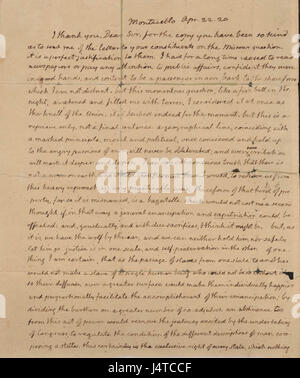 Monticello Apr. 22. 20
I thank you, Dear Sir, for the copy you have been so kind
as to send me of the letter to your constituents on the Missouri question.
it is a perfect justification to them. I had for a long time ceased to read
newspapers or pay any attention to public affairs, confident they were
in good hands, and content to be a passenger in our bark to the shore from
which I am not distant. but this momentous question, like a fire bell in the
night, awakened and filled me with terror. I considered it at once as
the knell of the Union. it is hushed indeed for the moment. but this is a
reprieve only, not a final sentence. a geographical line, coinciding with
a marked principle, moral and political, once conceived and held up
to the angry passions of men, will never be obliterated; and every new
will mark it deeper conscious truth that there is
not a man on earth would, to relieve us from
this heavy reproach, cession of that kind of pro-
perty, for so it is misnamed, is a bagatelle which would not cost me a second
thought, if, in that way, a general emancipation and expatriation could be
effected: and, gradually, and with due sacrifices, I think it might be. but, as
it is, we have the wolf by the ear, and we can neither hold him, nor safely
let him go. justice is in one scale, and self-preservation in the other. of one
thing I am certain, that as the passage of slaves from one state to another
would not make a slave of a single human being who would not be so without it, so
their diffusion over a greater surface would make them individually happier
and proportionally facilitate the accomplishment of their emancipation; by
dividing the burthen on a greater number of co-adjutors. an abstinence too
from this act of power would remove the jealousy excited by the undertaking
of Congress, to regulate the condition of the different descriptions of men com-
posing a state. this certainly is the exclusive right of every state, which nothing
alamy